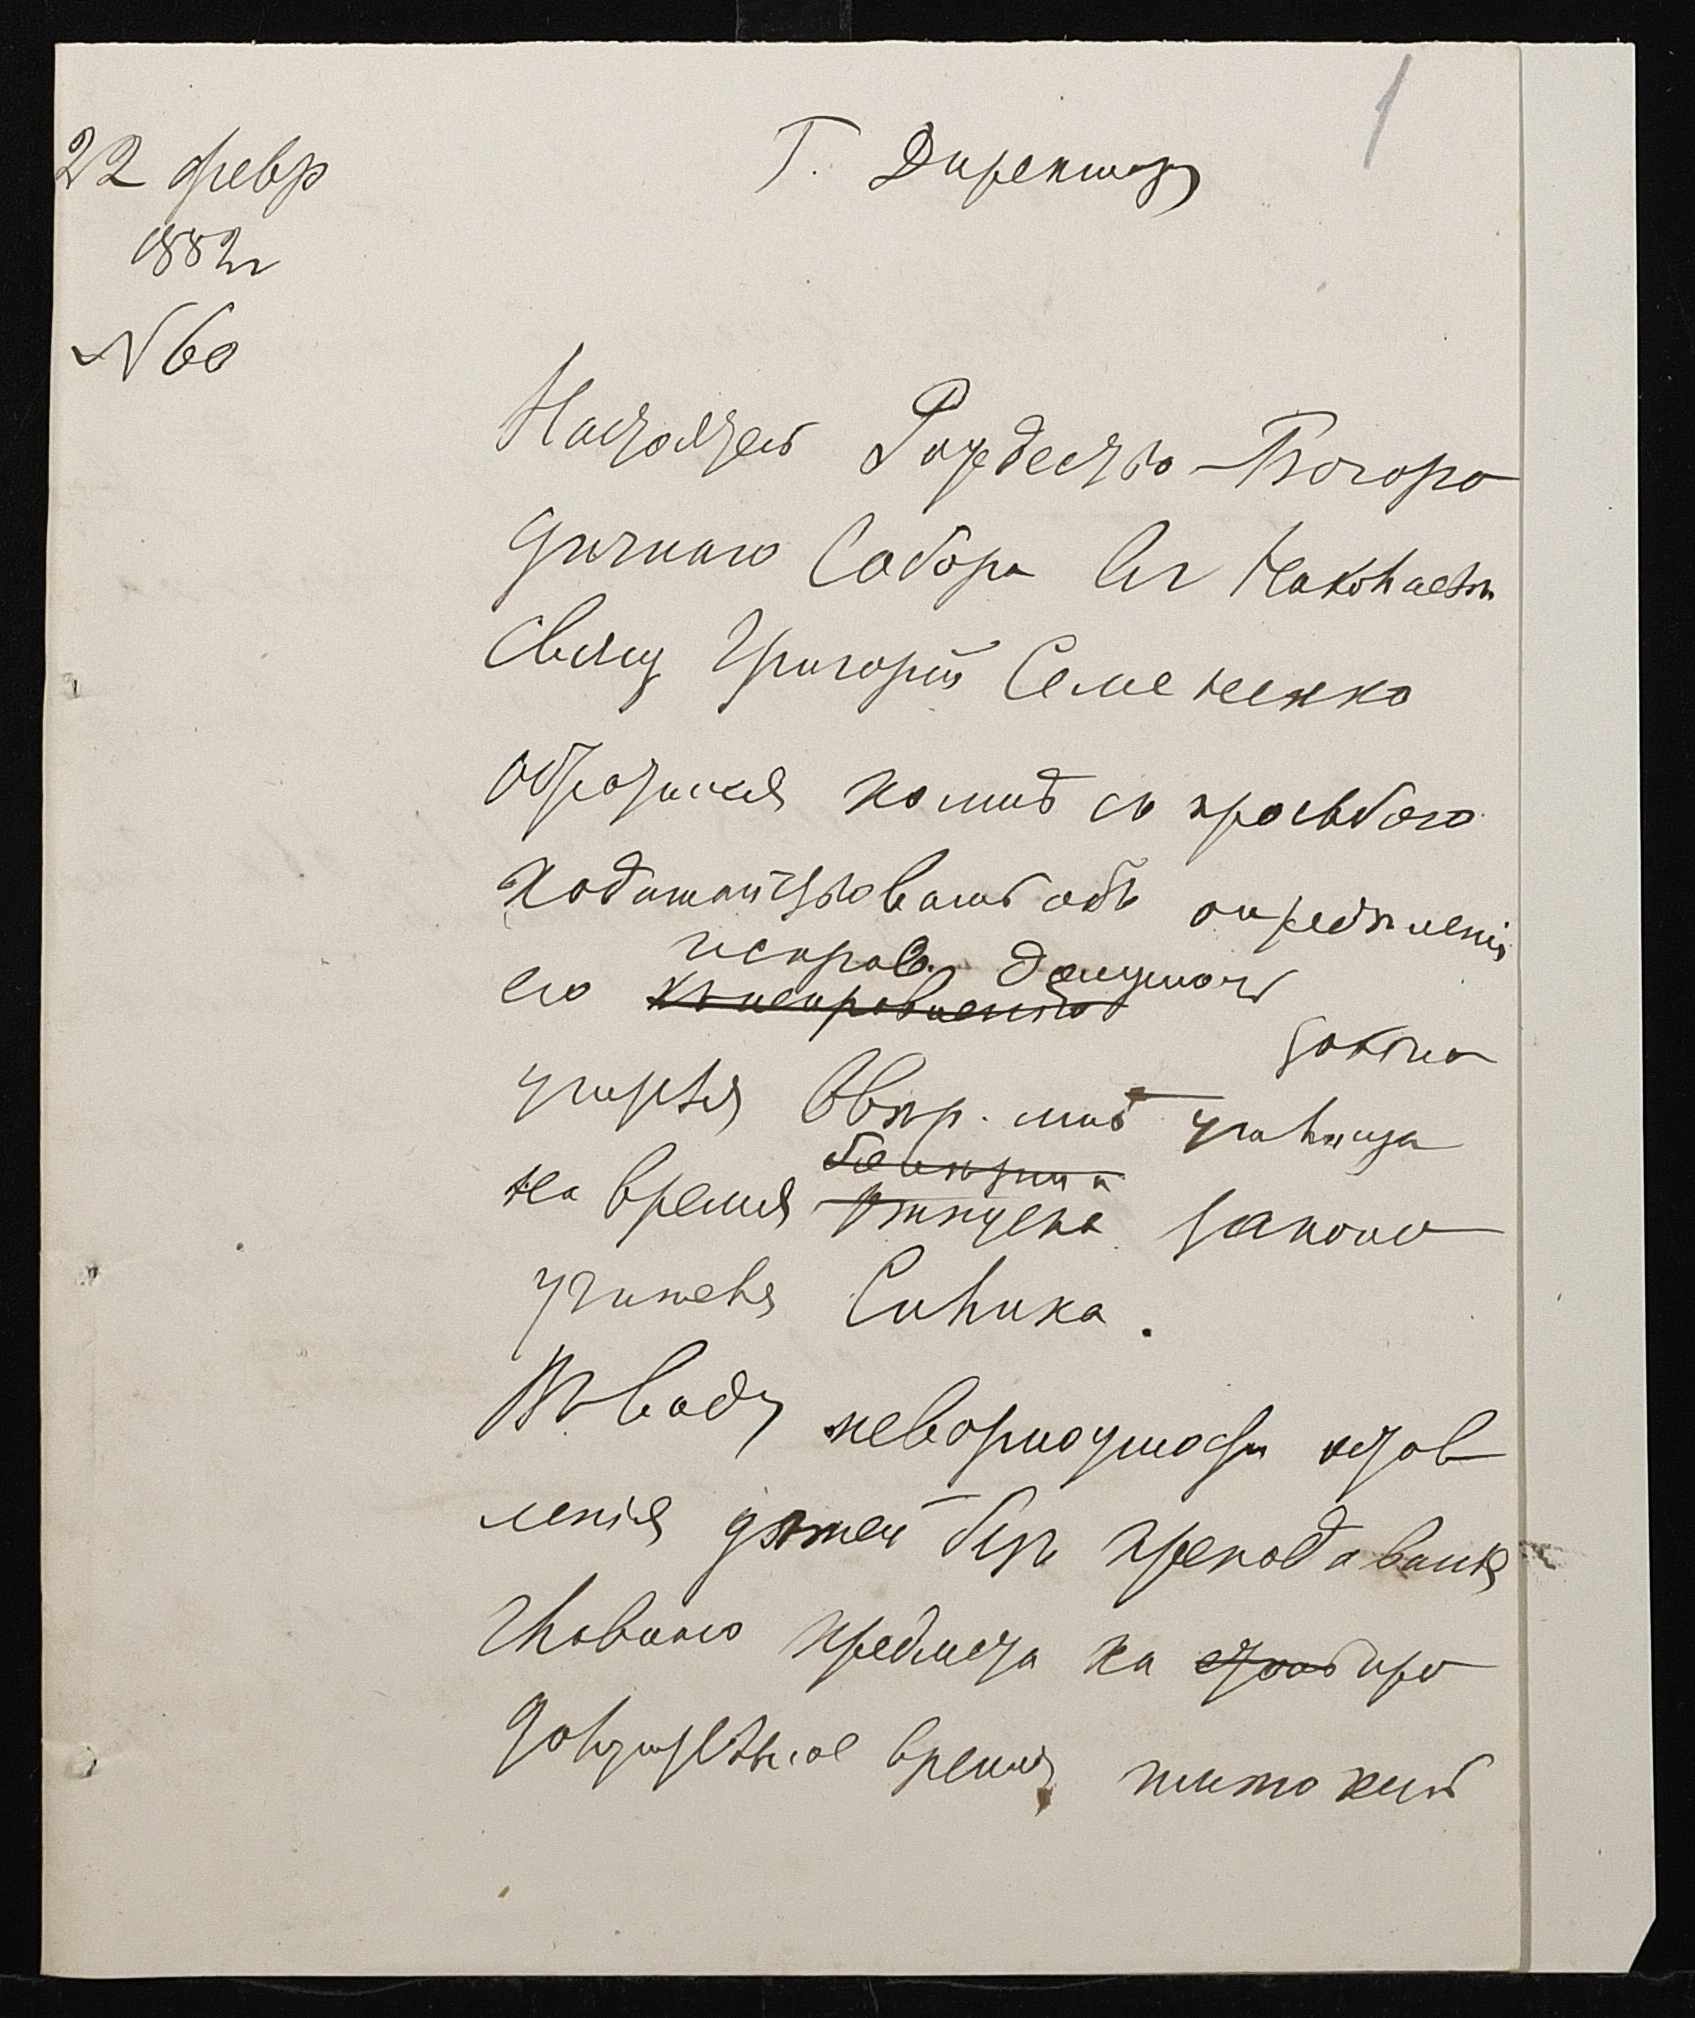 1
22 февр
1882 г
N 60
Г. Директору
Настоятель Рождество-Богоро
дичнаго Собора въ Николаевѣ
Свящ Григорій Семененко
обратился ко мнѣ съ просьбою
ходатайствовать объ опредѣленіи
исправ. должность
его къ исправленію
законо
учителя Ввѣр. мнѣ училища
болѣзни
на время отпуска законо
учителя
Въ виду невозможности остав
ленія дѣтей безъ преподаванія
главнаго предмета на столь про
должительное время